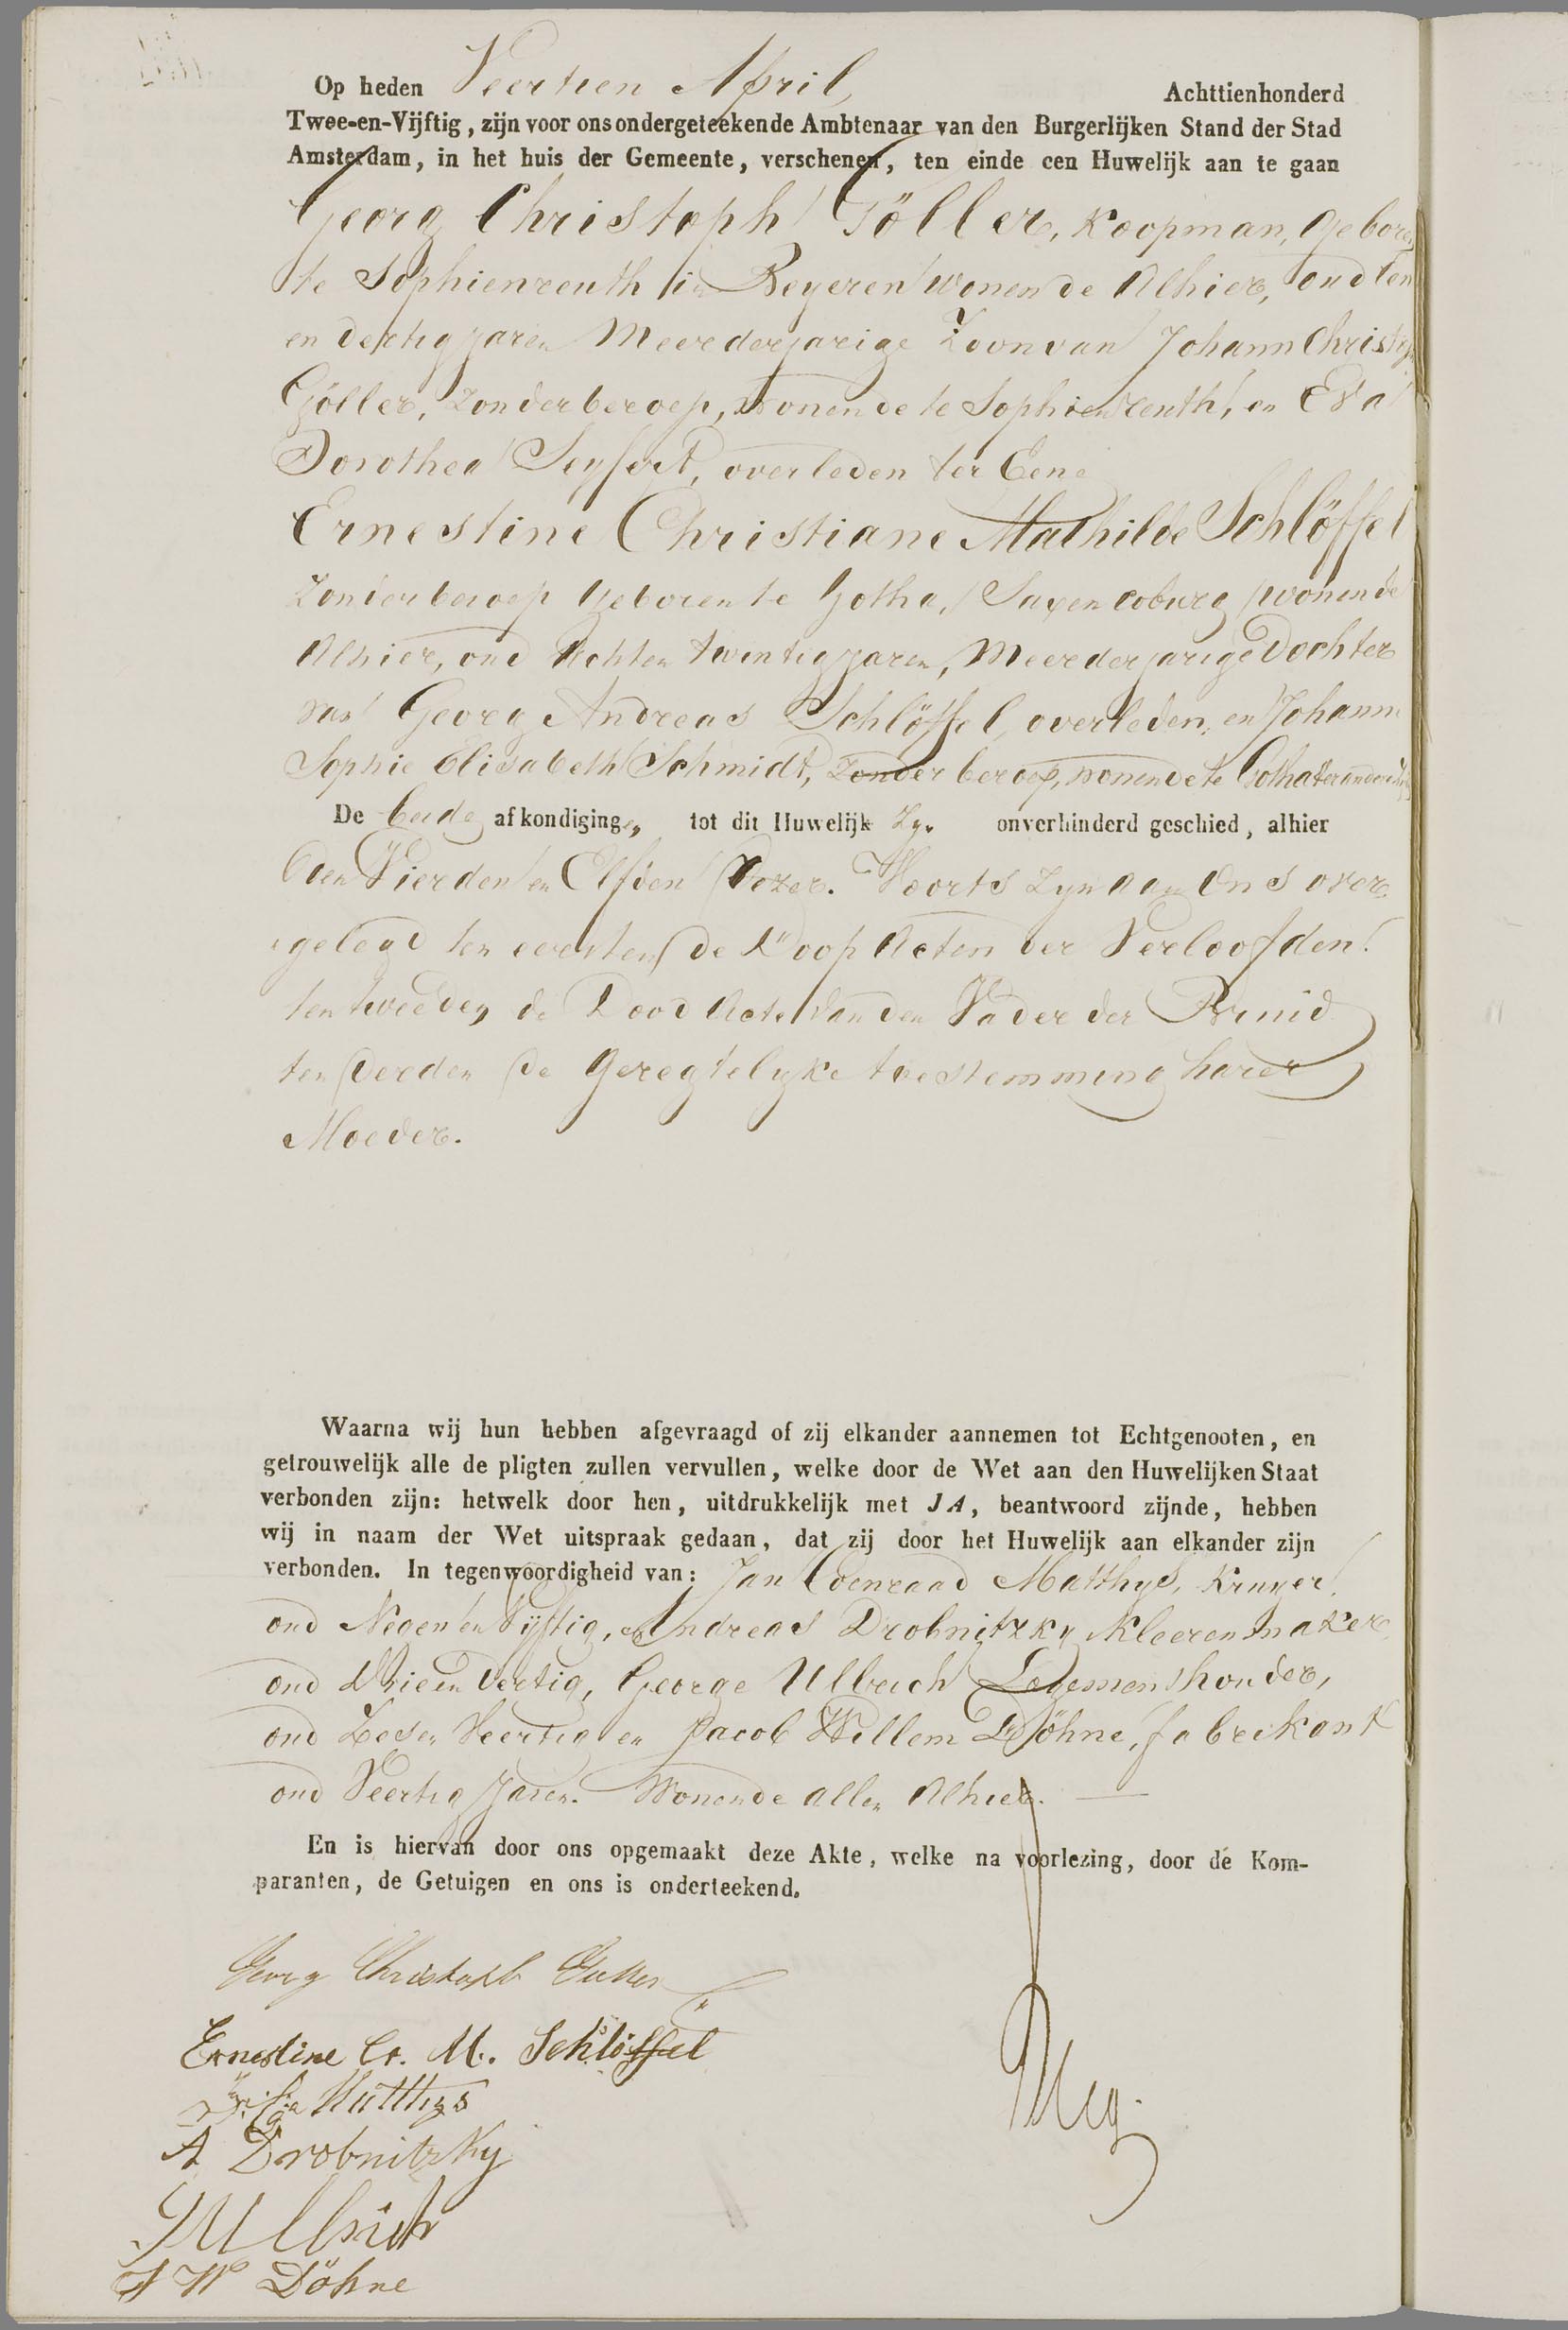 Op heden Veertien April Achttienhonderd
Twee-en-Vijftig, zijn voor ons ondergeteekende Ambtenaar van den Burgerlijken Stand der Stad
Amsterdam, in het huis der Gemeente, verschenen, ten einde een Huwelijk aan te gaan
Georg Christoph Göller, Koopman, Geboren
te Sophienreuth in Beyeren wonende Alhier, oud
en dertig jaren Meerderjarige Zoon van Johann Christoph
Göller, Zonder beroep, wonende te Sophienreuth, en Eva
Dorothea Seyfert, overleden ter Eene
Ernestine Christiane Mathilde Schlöffel
Zonder beroep Geboren te Gotha, Saxencoburg wonende
Alhier, oud Achten twintig jaren, Meerderjarige Dochter
van Georg Andreas Schlöffel, overleden, en Johann
Sophie Elisabeth Schmidt, Zonder beroep, wonende te Gotha ter andere
De beide afkondigingen, tot dit Huwelijk Zyn onverhinderd geschied, alhier
den Vierden en Elfden Dezer. Voorts Zyn aan Ons over
gelegd ten eersten de Doop Acten der Verloofden.
ten tweeden de Dood Acte van den Vader der Bruid
ten derden de Geregtelyke toestemming harer
Moeder.
Waarna wij hun hebben afgevraagd of zij elkander aannemen tot Echtgenooten, en
getrouwelijk alle de pligten zullen vervullen, welke door de Wet aan den Huwelijken Staat
verbonden zijn: hetwelk door hen, uitdrukkelijk met JA, beantwoord zijnde, hebben
wij in naam der Wet uitspraak gedaan, dat zij door het Huwelijk aan elkander zijn
verbonden. In tegenwoordigheid van: Jan Coenraad Matthys, Kruyer,
oud Negen en Vyftig, Andreas Drobnitzky Kleerenmaker
oud Drieen Dertig, George Ulbrich Logementhouder,
oud Zes en Veertig en Jacob Willem Döhne, fabrikant
oud Veertig Jaren. Wonende allen Alhier.
En is hiervan door ons opgemaakt deze Akte, welke na voorlezing, door de Kom-
paranten, de Getuigen en ons is onderteekend.
Georg Christoph Göller
Ernestine Cr. M. Schlöffel
Matthys
A Drobnitzky
G Ullrich
J W Döhne